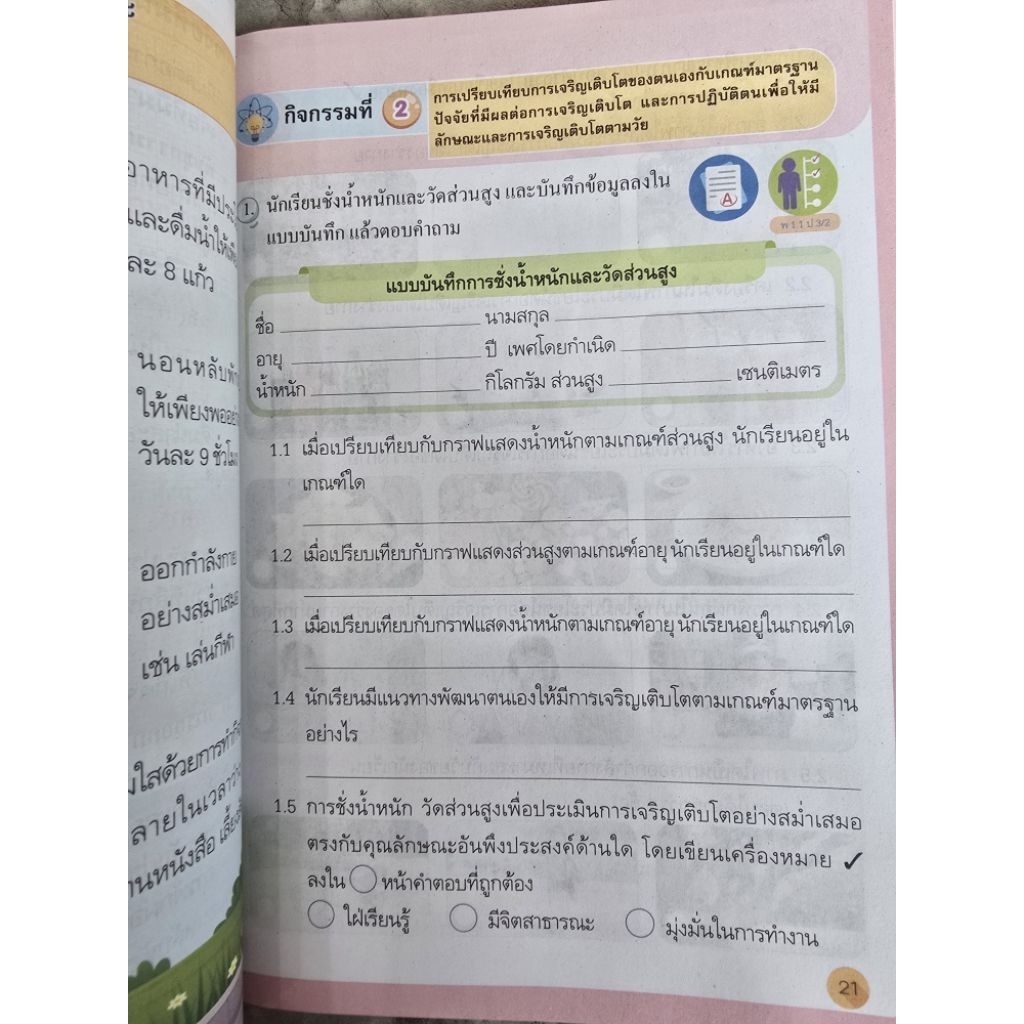 อาหารที่มีประ
และดื่มน้ำให้เพี
ละ 8 แก้ว
นอนหลับพัก
ให้เพียงพออย่า
วันละ 9 ชั่วโมง
ออกกำลังกาย
อย่างสม่ำเสมอ
เช่น เล่นกีฬา
ใสด้วยการทำกิจ
ลายในเวลาว่าง
านหนังสือ เลี้ยง
กิจกรรมที่ 2
การเปรียบเทียบการเจริญเติบโตของตนเองกับเกณฑ์มาตรฐาน
ปัจจัยที่มีผลต่อการเจริญเติบโต และการปฏิบัติตนเพื่อให้มี
ลักษณะและการเจริญเติบโตตามวัย
1. นักเรียนชั่งน้ำหนักและวัดส่วนสูง และบันทึกข้อมูลลงใน
แบบบันทึก แล้วตอบคำถาม
A
พ 1.1 ป.3/2
แบบบันทึกการชั่งน้ำหนักและวัดส่วนสูง
ชื่อ นามสกุล
อายุ ปี เพศโดยกำเนิด
น้ำหนัก กิโลกรัม ส่วนสูง เซนติเมตร
1.1 เมื่อเปรียบเทียบกับกราฟแสดงน้ำหนักตามเกณฑ์ส่วนสูง นักเรียนอยู่ใน
เกณฑ์ใด
1.2 เมื่อเปรียบเทียบกับกราฟแสดงส่วนสูงตามเกณฑ์อายุ นักเรียนอยู่ในเกณฑ์ใด
1.3 เมื่อเปรียบเทียบกับกราฟแสดงน้ำหนักตามเกณฑ์อายุ นักเรียนอยู่ในเกณฑ์ใด
1.4 นักเรียนมีแนวทางพัฒนาตนเองให้มีการเจริญเติบโตตามเกณฑ์มาตรฐาน
อย่างไร
1.5 การชั่งน้ำหนัก วัดส่วนสูงเพื่อประเมินการเจริญเติบโตอย่างสม่ำเสมอ
ตรงกับคุณลักษณะอันพึงประสงค์ด้านใด โดยเขียนเครื่องหมาย ✓
ลงใน ◯ หน้าคำตอบที่ถูกต้อง
◯ ใฝ่เรียนรู้ ◯ มีจิตสาธารณะ ◯ มุ่งมั่นในการทำงาน
21